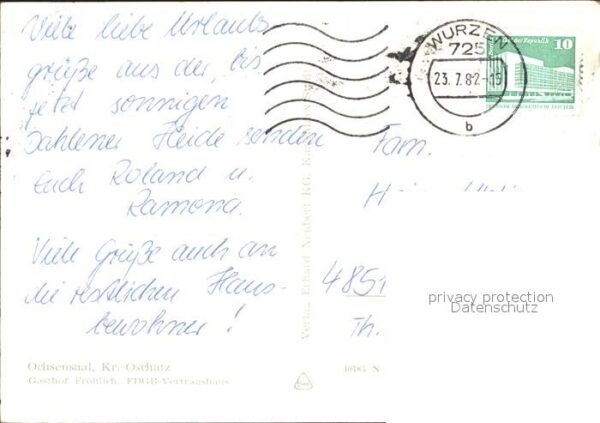 Viele liebe Urlaubs
grüße aus der, bis
jetzt sonnigen
Dahlener Heide senden
Euch Roland u.
Ramona.
Viele Grüße auch an
die restlichen Haus-
bewohner!
Ochsensaal, Kr. Oschatz
Gasthof Fröhlich, FDGB-Vertragshaus
Verlag Erhard Neubert KG,
WURZEN
725
23.7.82-15
b
der Republik 10
Fam.
4851
Th.
privacy protection
Datenschutz